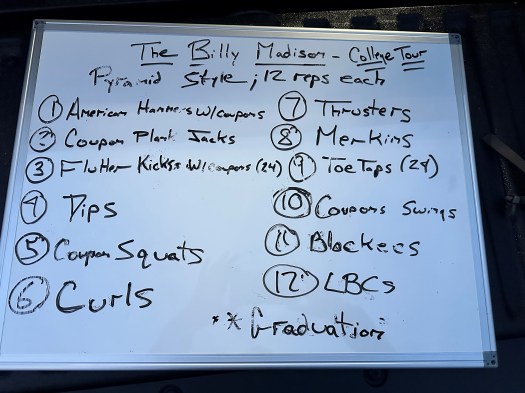 The Billy Madison - College Tour
Pyramid Style; 12 reps each
1 American Hammers w/coupons
2 Coupon Plank Jacks
3 Flutter Kicks w/coupons (24)
4 Dips
5 Coupon Squats
6 Curls
7 Thrusters
8 Merkins
9 Toe Taps (24)
10 Coupons Swings
11 Blockees
12 LBCs
** Graduation